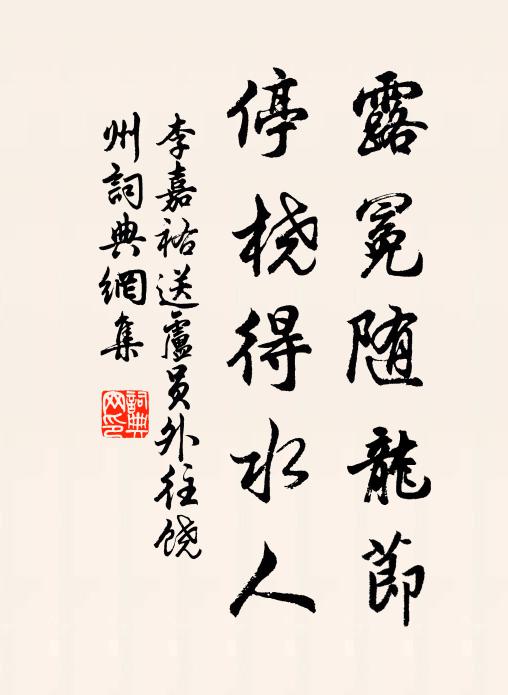 露冕随龍節
停桡得水人
李嘉祐送盧員外往饶
州詞典網集
詞典网印